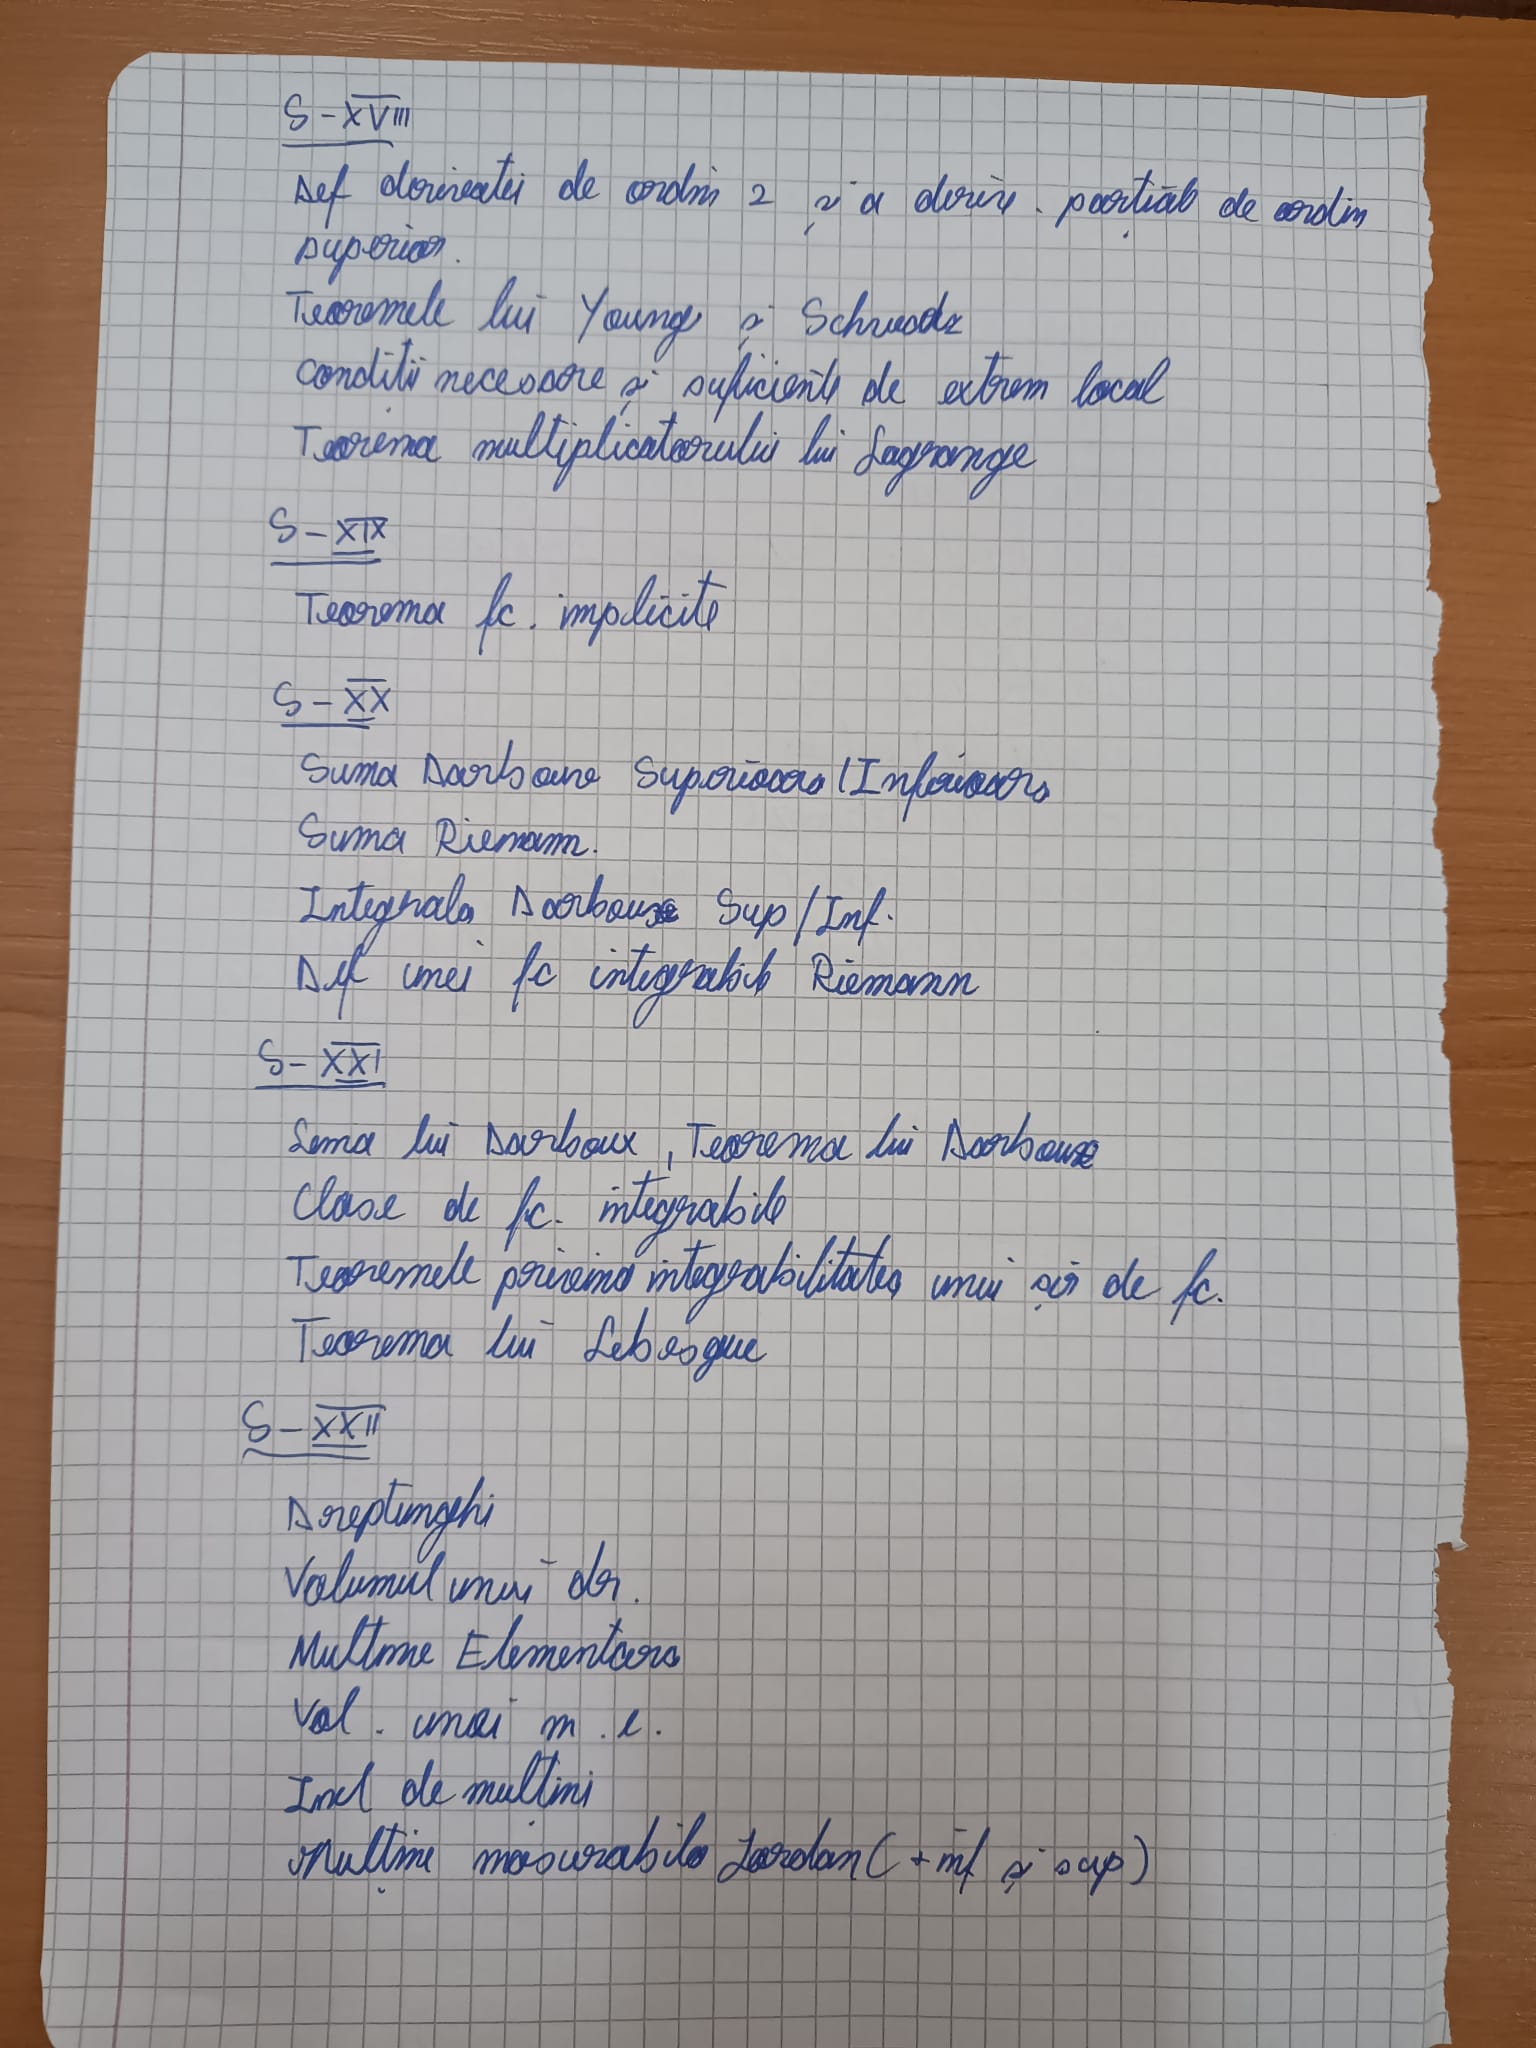 S-XVIII
Def derivatei de ordin 2 și a deriv. parțiale de ordin
superior.
Teoremele lui Young și Schwarz
Conditii necesare și suficiente de extrem local
Teorema multiplicatorului lui Lagrange
S-XIX
Teorema fc. implicite
S-XX
Suma Darboux Superioara/Inferioara
Suma Riemann.
Integrala Darboux Sup/Inf.
Def unei fc integrabile Riemann
S-XXI
Lema lui Darboux, Teorema lui Darboux
Clase de fc. integrabile
Teoremele privind integrabilitatea unui șir de fc.
Teorema lui Lebesgue
S-XXII
Dreptunghi
Volumul unui dr.
Multime Elementara
Vol. unei m.e.
Inel de multimi
Mulțime măsurabila Jordan (+ inf și sup)